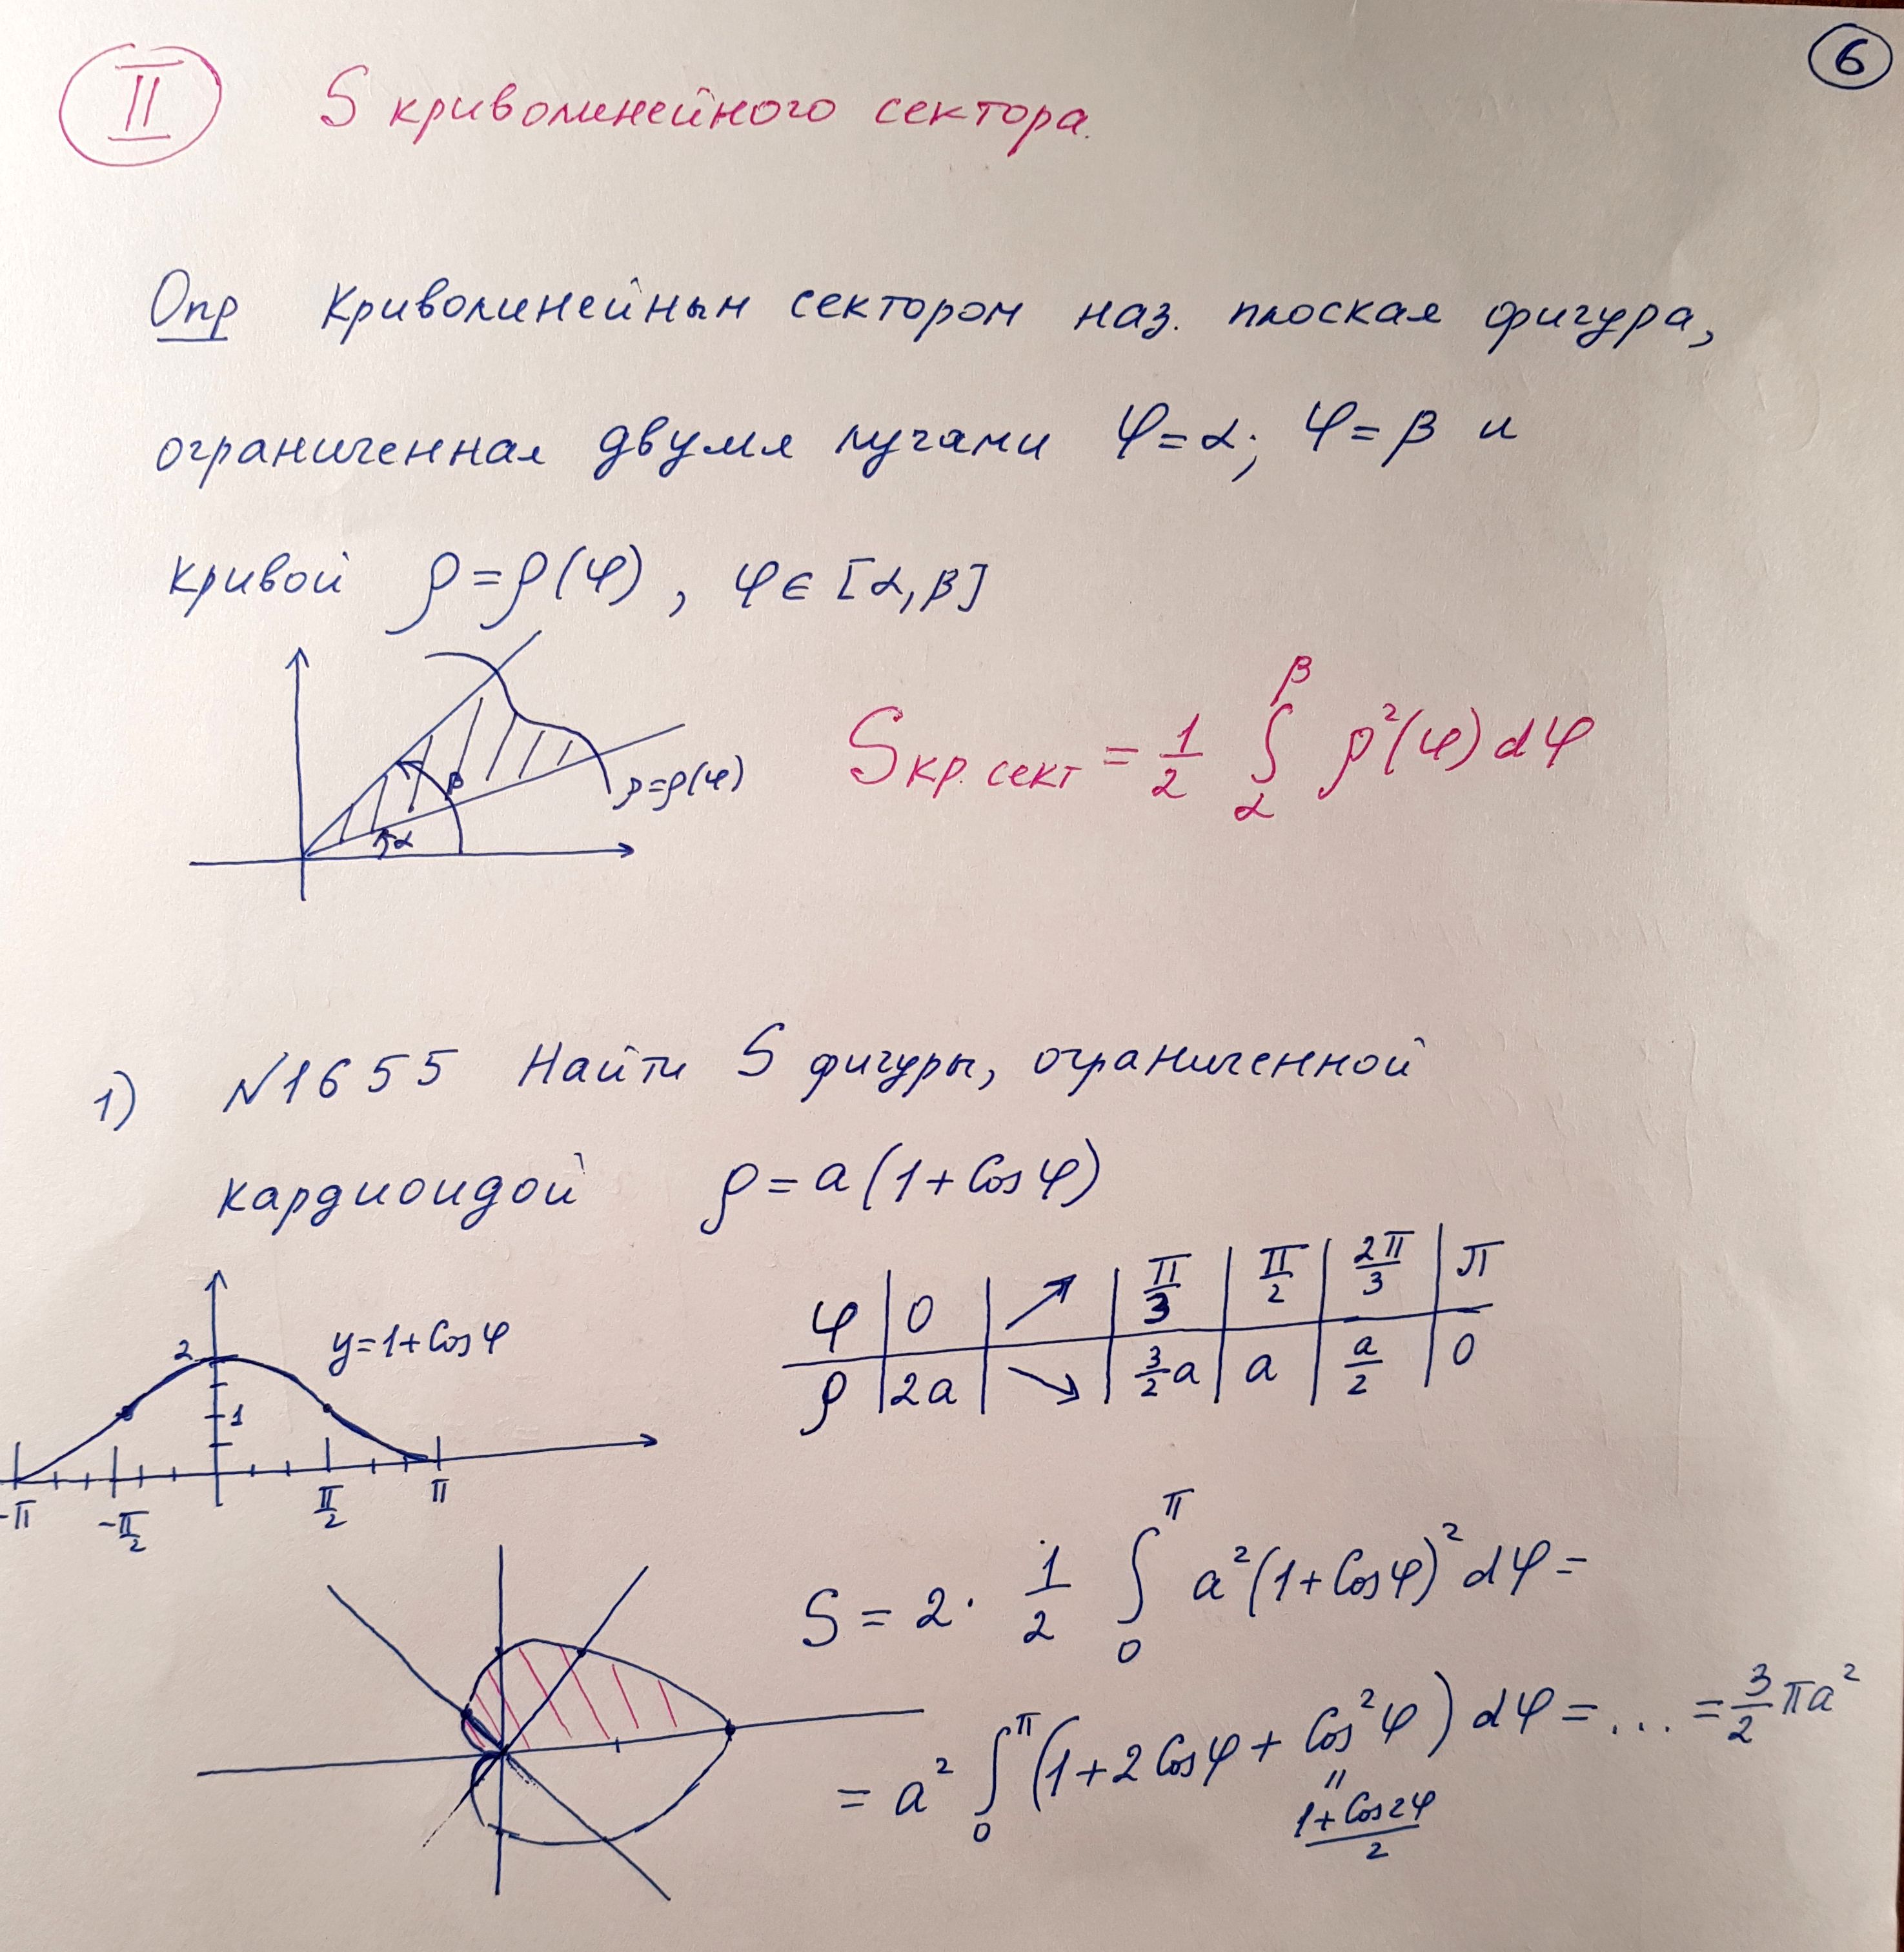 6
II S криволинейного сектора.
Опр Криволинейным сектором наз. плоская фигура,
ограниченная двумя лучами φ=α; φ=β и
кривой ρ=ρ(φ), φ∈[α,β]
β
α
ρ=ρ(φ)
Sкр. сект = 1/2 ∫_α^β ρ²(φ)dφ
1) №1655 Найти S фигуры, ограниченной
кардиоидой ρ=a(1+Cosφ)
φ | 0 | ↗ | π/3 | π/2 | 2π/3 | π
ρ | 2a | ↘ | 3/2 a | a | a/2 | 0
2 y=1+Cosφ
1
-π -π/2 π/2 π
S = 2 · 1/2 ∫_0^π a²(1+Cosφ)² dφ =
= a² ∫_0^π (1+2Cosφ+Cos²φ) dφ = ... = 3/2 πa²
"
1+Cos2φ/2